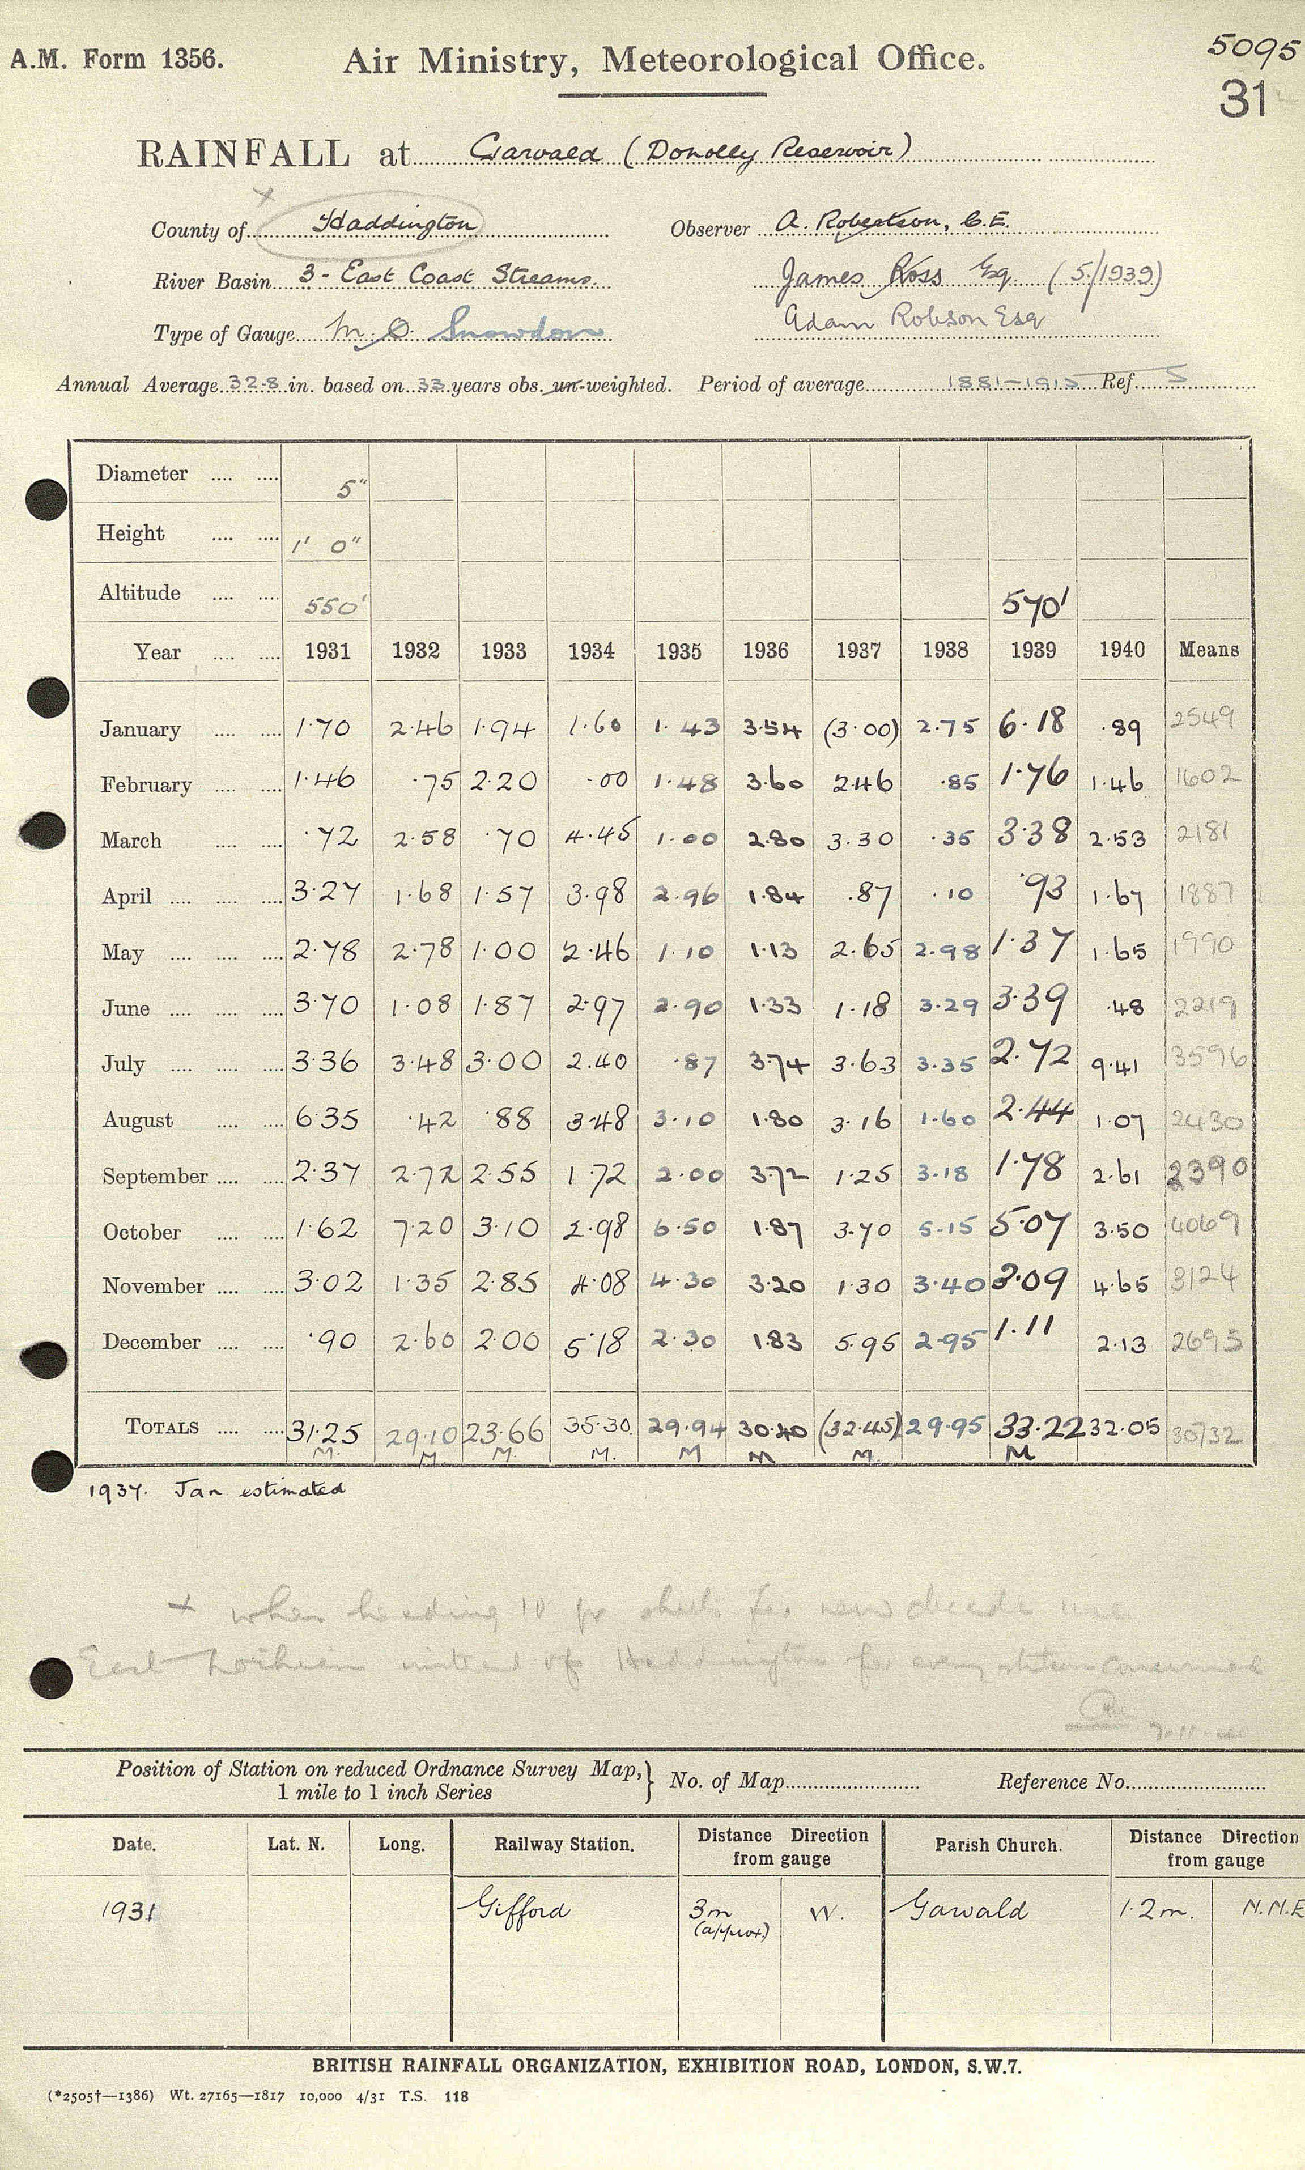 A.M. Form 1356.
Air Ministry, Meteorological Office.
5095
31
RAINFALL at Garvald (Donolly Reservoir)
County of Haddington Observer A. Robertson, C.E.
River Basin 3 - East Coast Streams. James Ross Esq. (5/1939)
Type of Gauge M.O. Snowdon Adam Robson Esq
Annual Average 32.8 in. based on 33 years obs. un-weighted. Period of average 1881-1915 Ref. S
Diameter 5"
Height 1' 0"
Altitude 550' 570'
Year 1931 1932 1933 1934 1935 1936 1937 1938 1939 1940 Means
January 1.70 2.46 1.94 1.60 1.43 3.54 (3.00) 2.75 6.18 .89 2549
February 1.46 .75 2.20 .00 1.48 3.60 2.46 .85 1.76 1.46 1602
March .72 2.58 .70 4.45 1.00 2.80 3.30 .35 3.38 2.53 2181
April 3.27 1.68 1.57 3.98 2.96 1.84 .87 .10 .93 1.67 1887
May 2.78 2.78 1.00 2.46 1.10 1.13 2.65 2.98 1.37 1.65 1990
June 3.70 1.08 1.87 2.97 2.90 1.33 1.18 3.29 3.39 .48 2219
July 3.36 3.48 3.00 2.40 .87 3.74 3.63 3.35 2.72 9.41 3596
August 6.35 .42 .88 3.48 3.10 1.80 3.16 1.60 2.44 1.07 2430
September 2.37 2.72 2.55 1.72 2.00 3.72 1.25 3.18 1.78 2.61 2390
October 1.62 7.20 3.10 2.98 6.50 1.87 3.70 5.15 5.07 3.50 4069
November 3.02 1.35 2.85 4.08 4.30 3.20 1.30 3.40 3.09 4.65 3124
December .90 2.60 2.00 5.18 2.30 1.83 5.95 2.95 1.11 2.13 2695
TOTALS 31.25 29.10 23.66 35.30 29.94 30.40 (32.45) 29.95 33.22 32.05 30732
M. M. M. M. M M M. M
1937. Jan estimated
+ when heading 10 yr sheets for new decade use
East Lothian instead of Haddington for every station concerned
Position of Station on reduced Ordnance Survey Map, } No. of Map Reference No.
1 mile to 1 inch Series
Date. Lat. N. Long. Railway Station. Distance Direction from gauge Parish Church. Distance Direction from gauge
1931 Gifford 3m (approx) W. Garvald 1.2m. N.N.E
BRITISH RAINFALL ORGANIZATION, EXHIBITION ROAD, LONDON, S.W.7.
(*2505†—1386) Wt. 27165—1817 10,000 4/31 T.S. 118